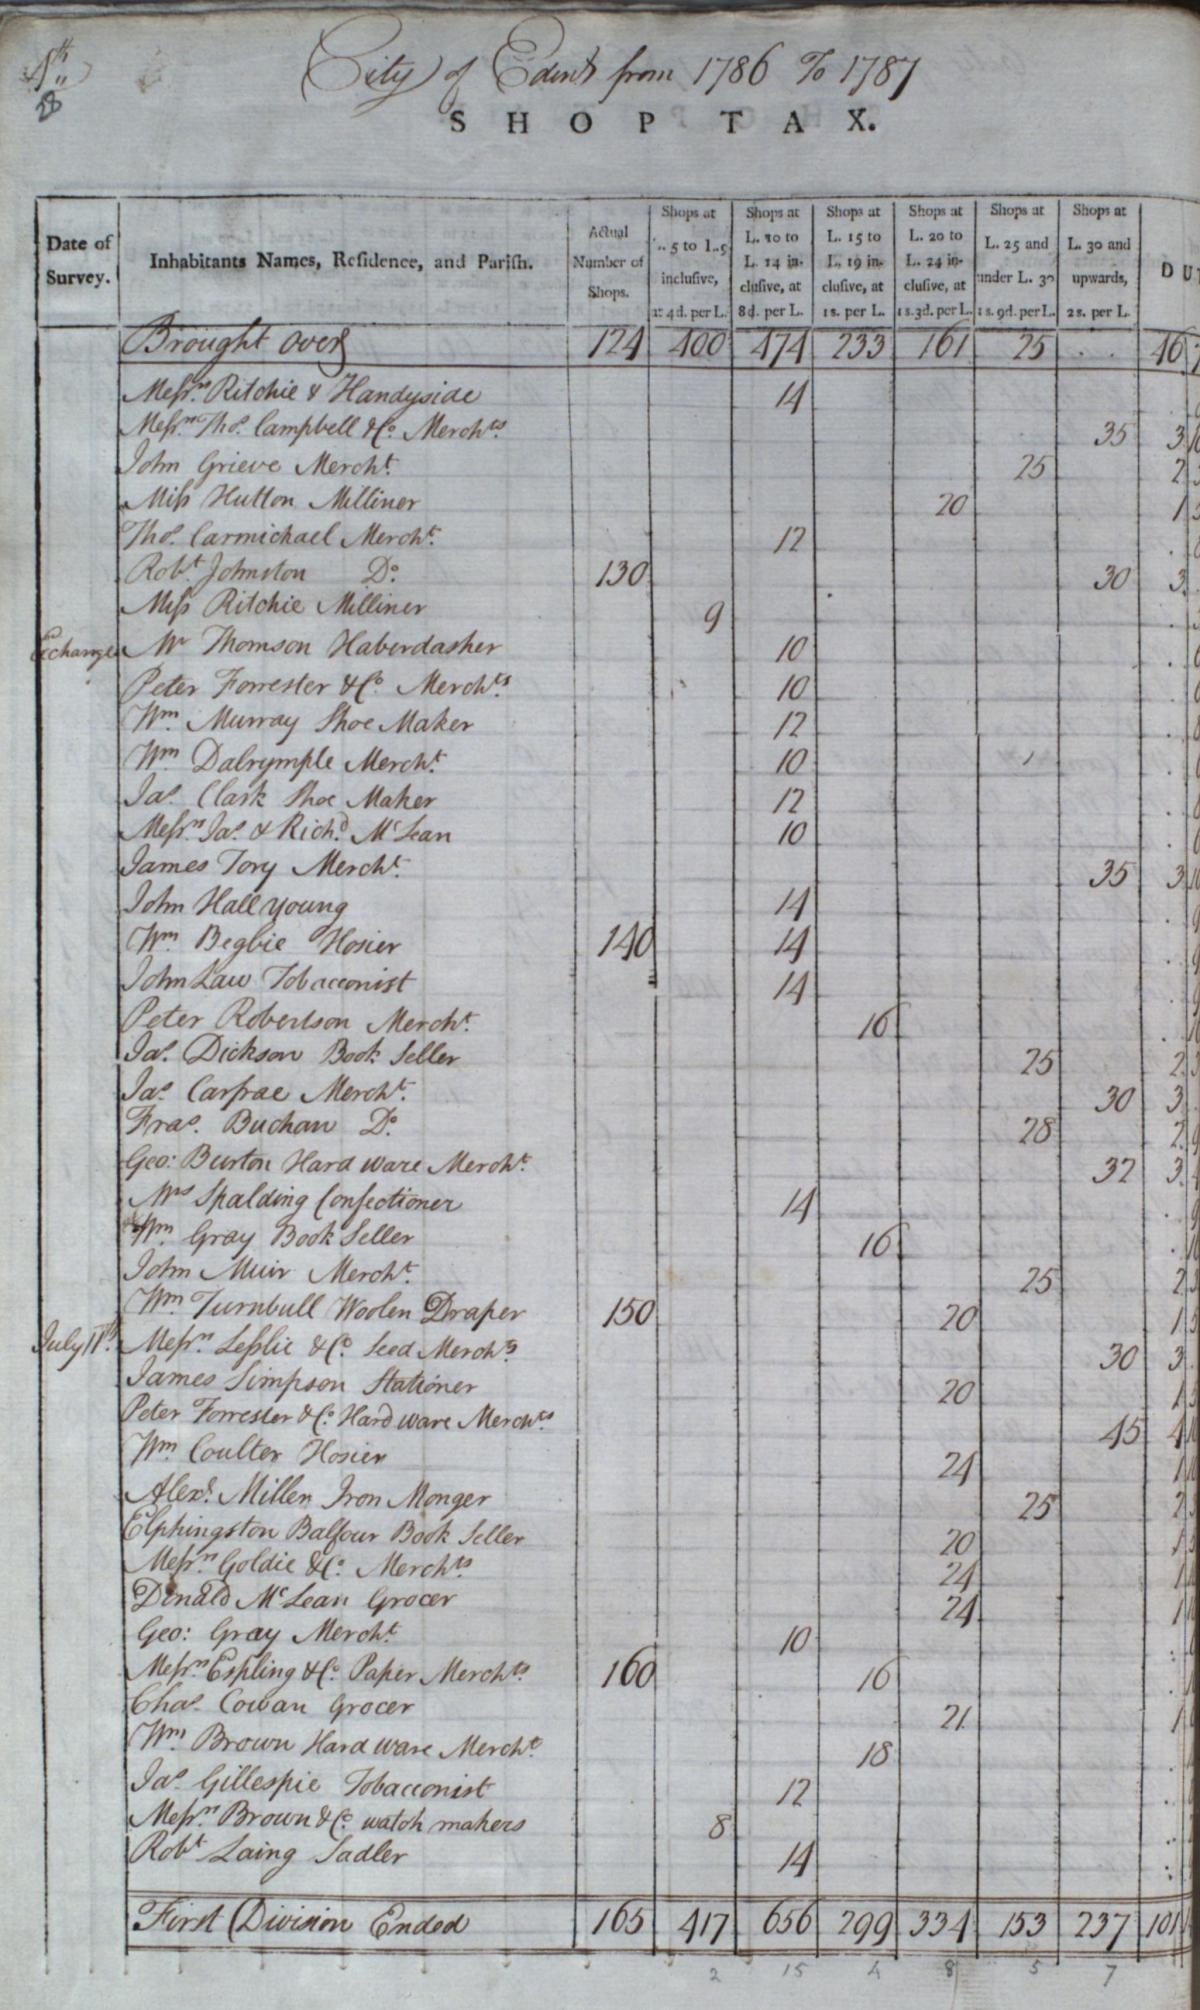 City of Edinr from 1786 To 1787
8
SHOP TAX.
Date of Survey. Inhabitants Names, Residence, and Parish. Actual Number of Shops. Shops at L. 5 to L. 9 inclusive, at 4d. per L. Shops at L. 10 to L. 14 inclusive, at 8d. per L. Shops at L. 15 to L. 19 inclusive, at 1s. per L. Shops at L. 20 to L. 24 inclusive, at 1s. 3d. per L. Shops at L. 25 and under L. 30 1s. 9d. per L. Shops at L. 30 and upwards, 2s. per L. DUT
Brought over 124 400 474 233 161 25 . . 46
Messrs Ritchie & Handyside 14
Messrs Thos. Campbell & Co. Merchts 35 3 10
John Grieve Mercht. 25 2
Miss Hutton Milliner 20 1 5
Thos. Carmichael Mercht. 12
Robt. Johnston Do. 130 30 3
Miss Ritchie Milliner 9
Exchange Mr Thomson Haberdasher 10
Peter Forrester & Co. Merchts 10
Wm. Murray Shoe Maker 12
Wm. Dalrymple Mercht. 10
Jas. Clark Shoe Maker 12
Messrs Jas. & Richd. McLean 10
James Tory Mercht. 35 3 10
John Hall young 14
Wm. Begbie Hosier 140 14
John Law Tobacconist 14
Peter Robertson Mercht. 16
Jas. Dickson Book Seller 25 2
Jas. Carfrae Mercht. 30 3
Fras. Buchan Do. 28 2
Geo: Burton Hard ware Mercht. 32 3
Mrs Spalding Confectioner 14
Wm. Gray Book Seller 16
John Muir Mercht. 25 2
Wm. Turnbull Woolen Draper 150 20 1 5
July 11th. Messrs Leslie & Co. Seed Merchts 30 3
James Simpson Stationer 20 1 5
Peter Forrester & Co. Hard ware Merchts 45 4 10
Wm. Coulter Hosier 24 1
Alexr. Millen Iron Monger 25 2
Elphingston Balfour Book Seller 20 1
Messrs Goldie & Co. Merchts 24 1
Donald McLean Grocer 24 1
Geo: Gray Mercht. 10
Messrs Espling & Co. Paper Merchts 160 16
Chas. Cowan Grocer 21 1
Wm. Brown Hard ware Mercht. 18
Jas. Gillespie Tobacconist 12
Messrs Brown & Co. watch makers 8
Robt Laing Sadler 14
First Division Ended 165 417 656 299 334 153 237 101
2 15 4 8 5 7